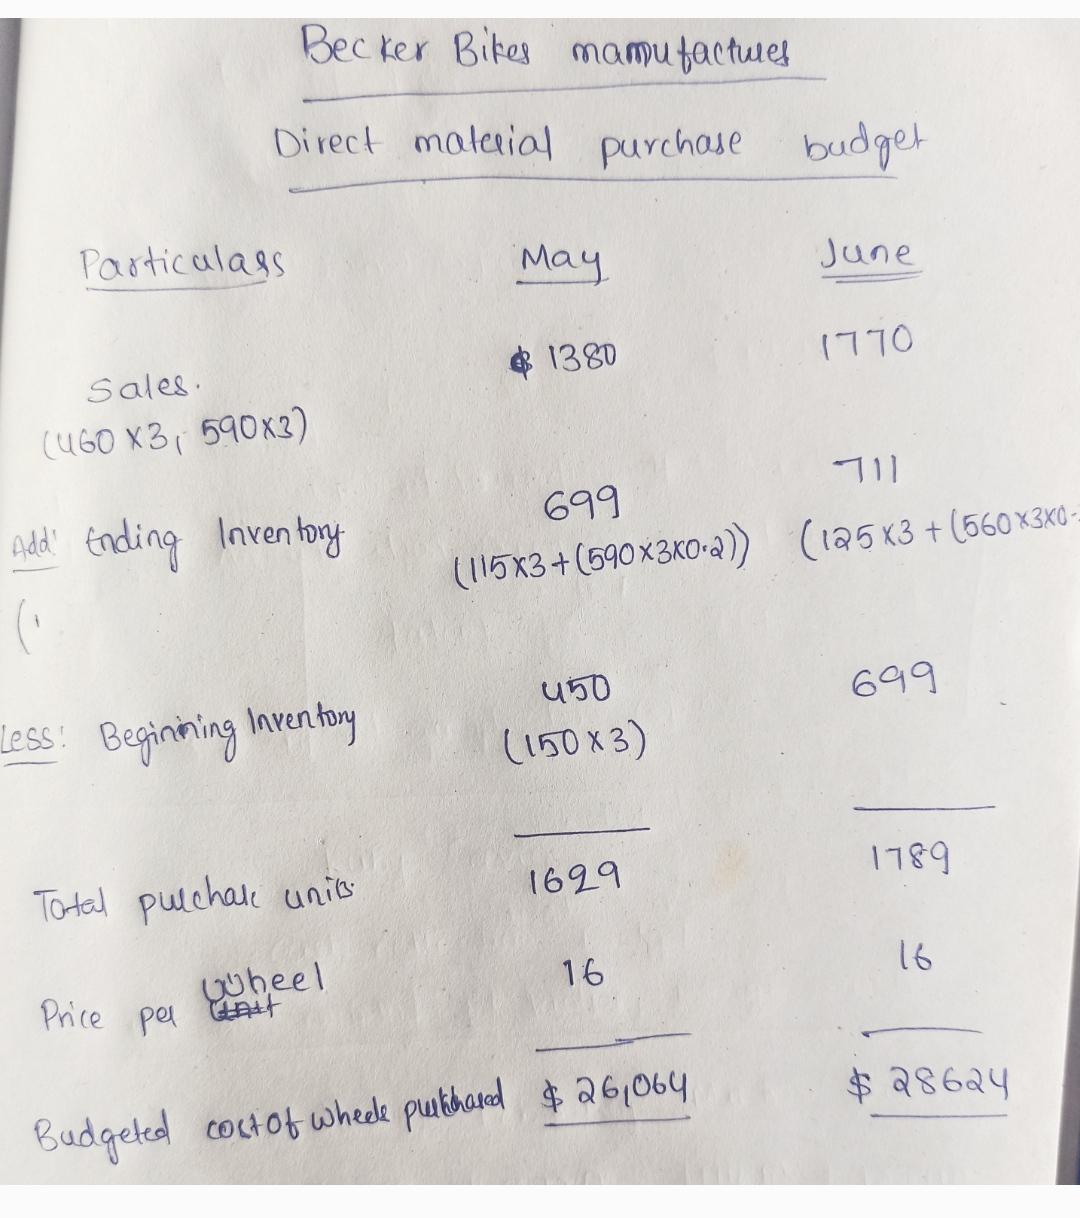 Becker Bikes manufactures
Direct material purchase budget
Particulars May June
Sales. $ 1380 1770
(460 x3, 590x3)
Add: Ending Inventory 699 711
(115x3+(590x3x0.2)) (125x3+(560x3x0.
(
Less: Beginning Inventory 450 699
(150x3)
Total purchase units 1629 1789
Price per wheel 16 16
Budgeted cost of wheels purchased $ 26,064 $ 28624